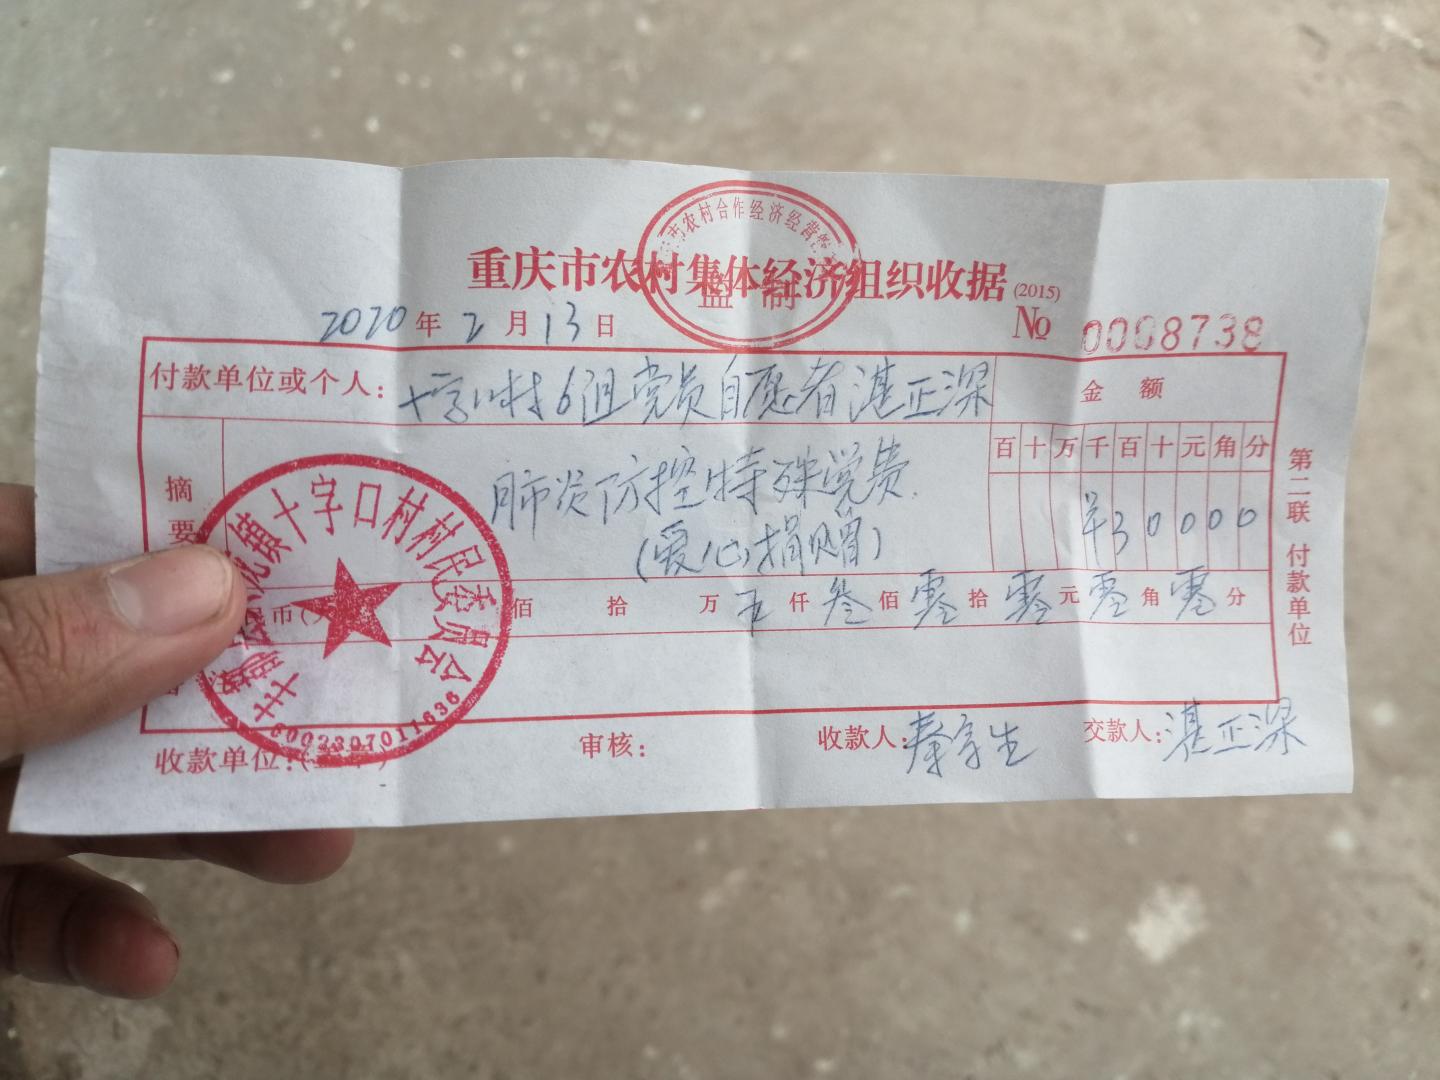 市农村合作经济经营管
监制
重庆市农村集体经济组织收据(2015)
2020年2月13日
№ 0008738
付款单位或个人：十字口村6组党员自愿者湛正深
金额
百十万千百十元角分
摘要
肺炎防控特殊党费
(爱心捐赠)
¥30000
币
佰拾万仟叁佰零拾零元零角零分
镇十字口村村民委员会
5002307011636
收款单位：
审核：
收款人：秦字生
交款人：湛正深
第二联 付款单位